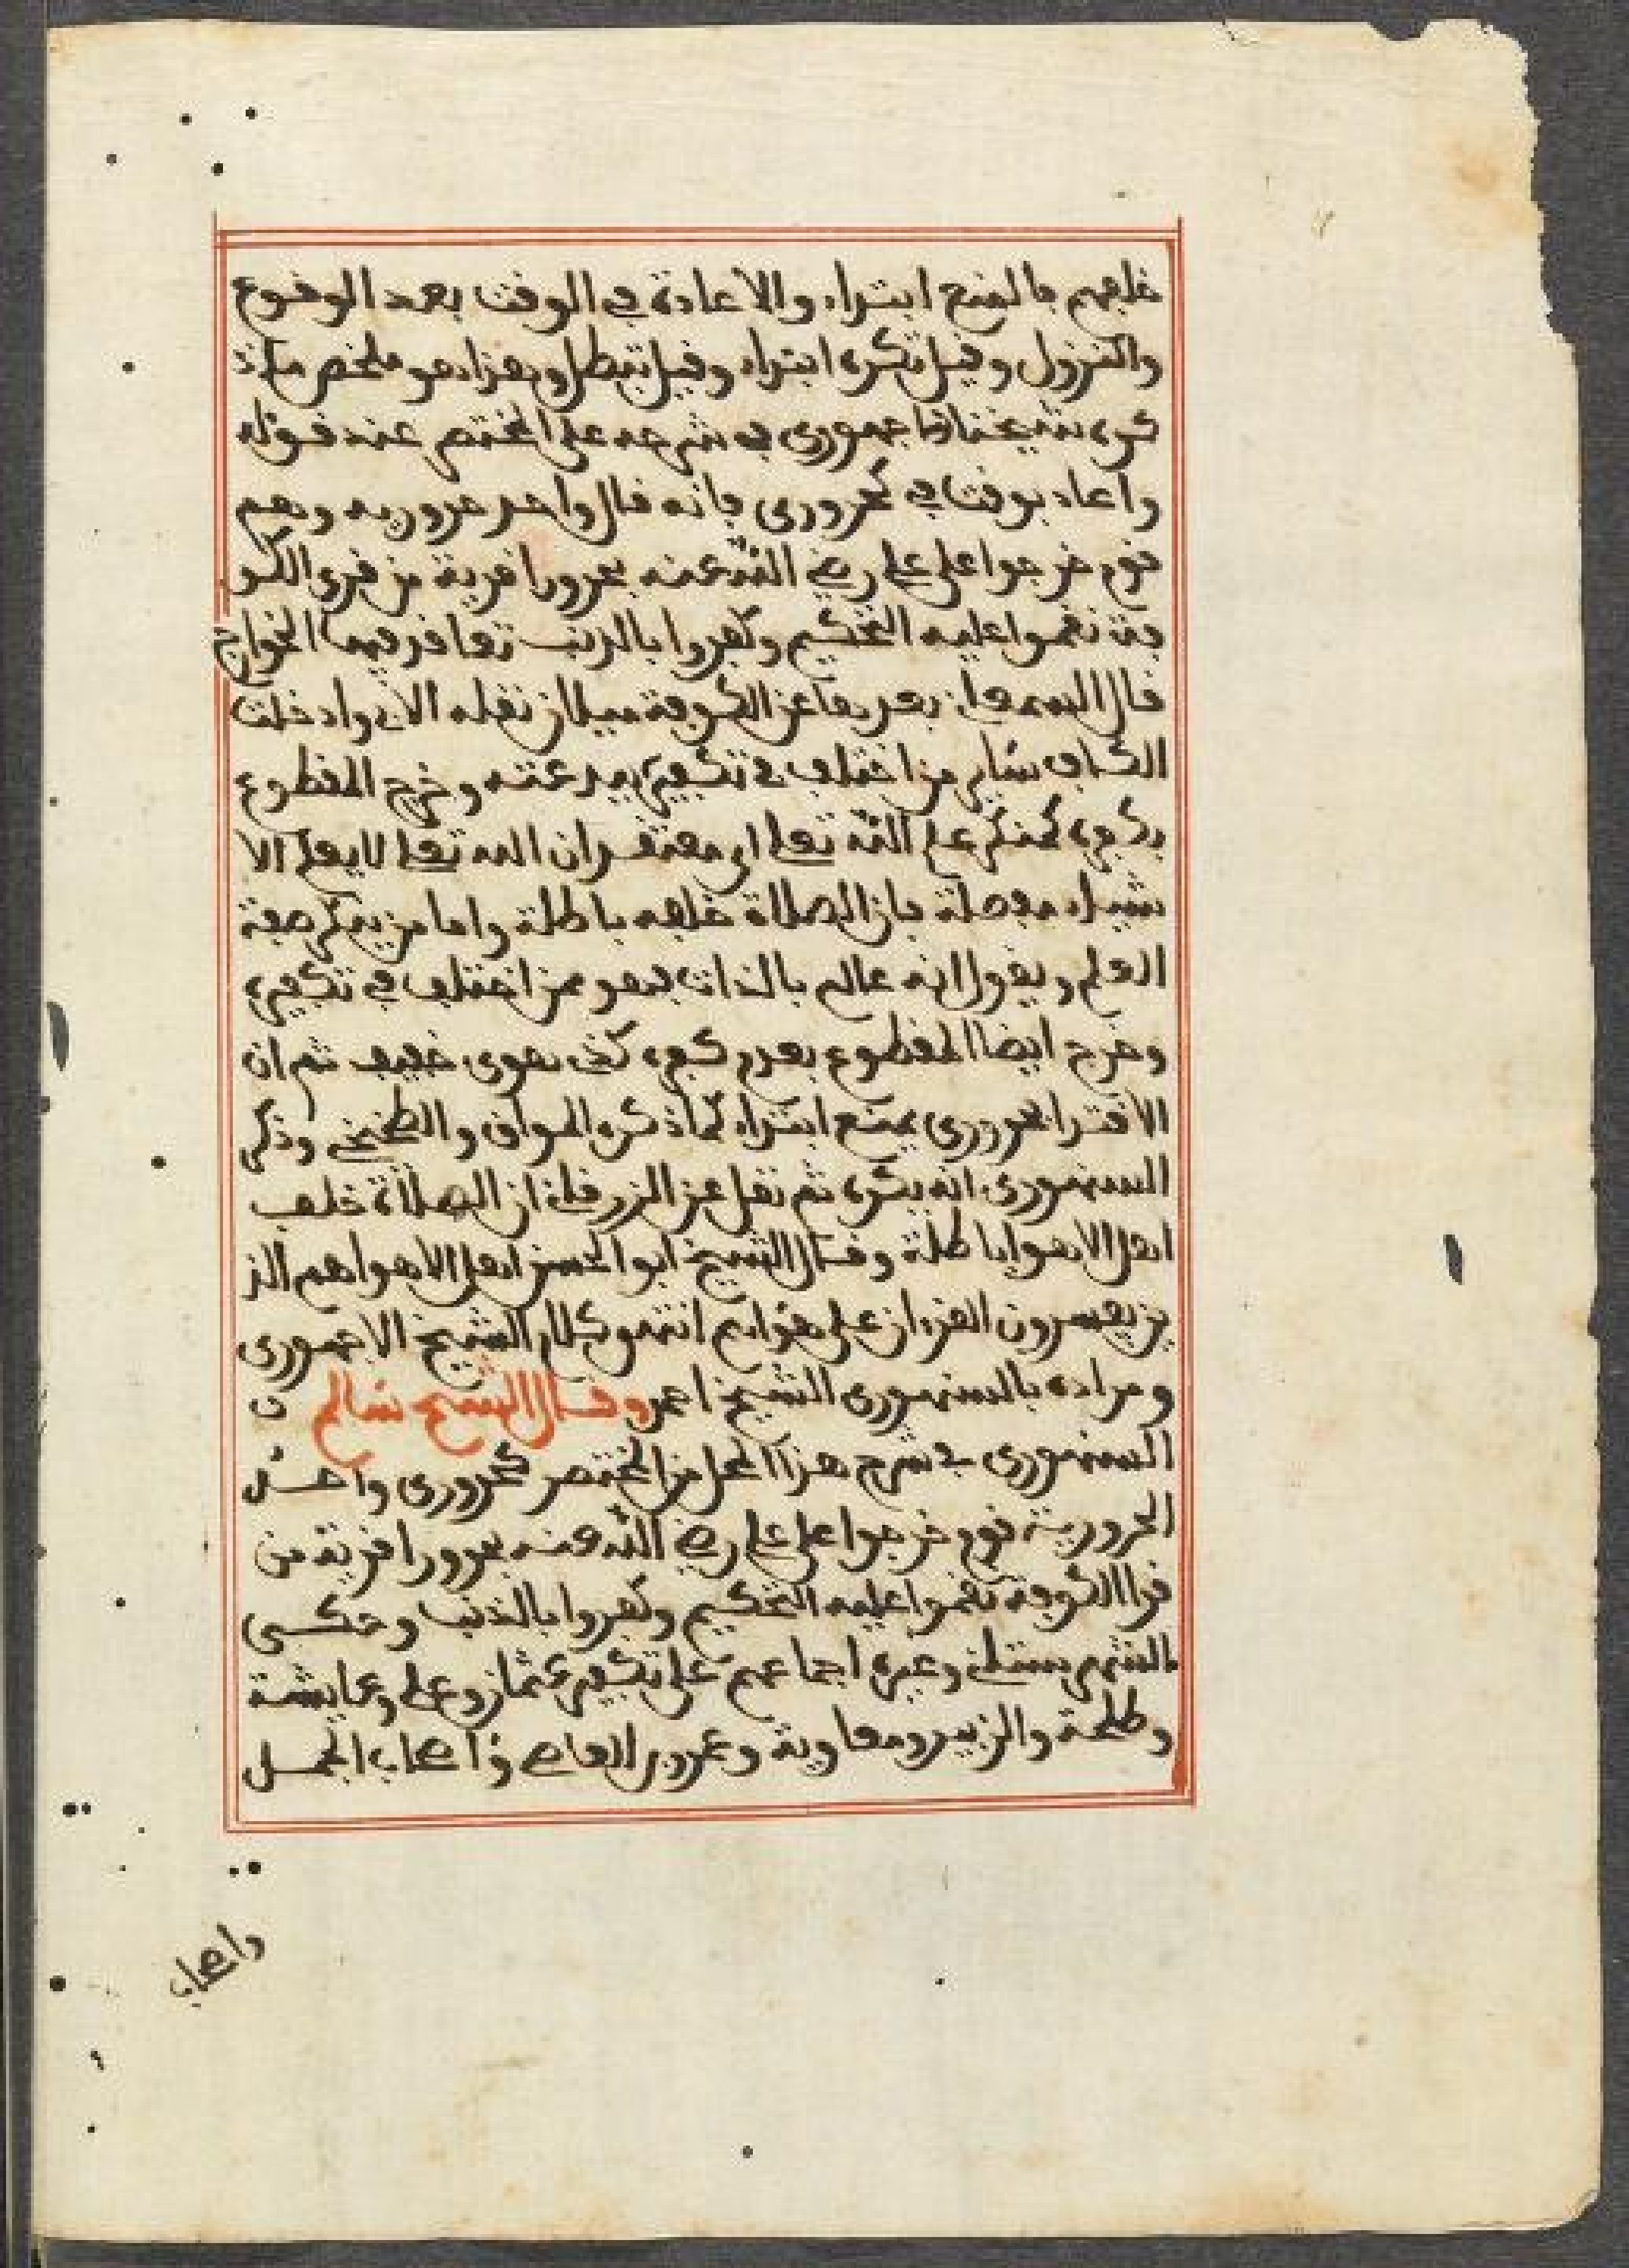 خلفهم بالمنع ابتداء والاعادة في الوقت بعد الوقوع
والنزول وقيل تكره ابتداء وقيل تبطل وهذا هو ملخص ماذ
كره شيخنا الاجهوري في شرحه على المختصر عند قوله
واعاد بوقت في كحروري فانه قال واحد حرورية وهم
قوم خرجوا على علي رضي الله عنه بحرورا قرية من قرى الكو
فة نقموا عليه التحكيم وكفروا بالذنب تعاقد فيها الخوارج
قال السمعاني بعدها عن الكوفة ميلان نقله الابي وادخلت
الكاف ساير من اختلف في تكفيره ببدعته وخرج المقطوع
بكفره كمنكر علم الله تعلى اي معتقد ان الله تعلى لا يعلم الا
شياء مفصلة فان الصلاة خلفه باطلة واما من ينكر صفة
العلم ويقول انه عالم بالذات فهو ممن اختلف في تكفيره
وخرج ايضا المقطوع بعدم كفره كذي هوى خفيف ثم ان
الاقتدا بحروري يمنع ابتداء كما ذكره المواق والطخيخي وذكر
السنهوري انه يكره ثم نقل عن الزرقاني ان الصلاة خلف
اهل الاهوا باطلة وقال الشيخ ابو الحسن اهل الاهوا هم الذ
ين يفسرون القرءان على هواهم انتهى كلام الشيخ الاجهوري
ومراده بالسنهوري الشيخ احمد وقال الشيخ سالم ن
السنهوري في شرح هذا المحل من المختصر كحروري واحد
الحرورية قوم خرجوا على علي رضي الله عنه بحرورا قرية من
قرا الكوفة نقموا عليه التحكيم وكفروا بالذنب وحكى
الشهرستاني وغيره اجماعهم على تكفير عثمان وعلي وعايشة
وطلحة والزبير ومعاوية وعمرو بن العاصي واصحاب الجمل
واصحاب